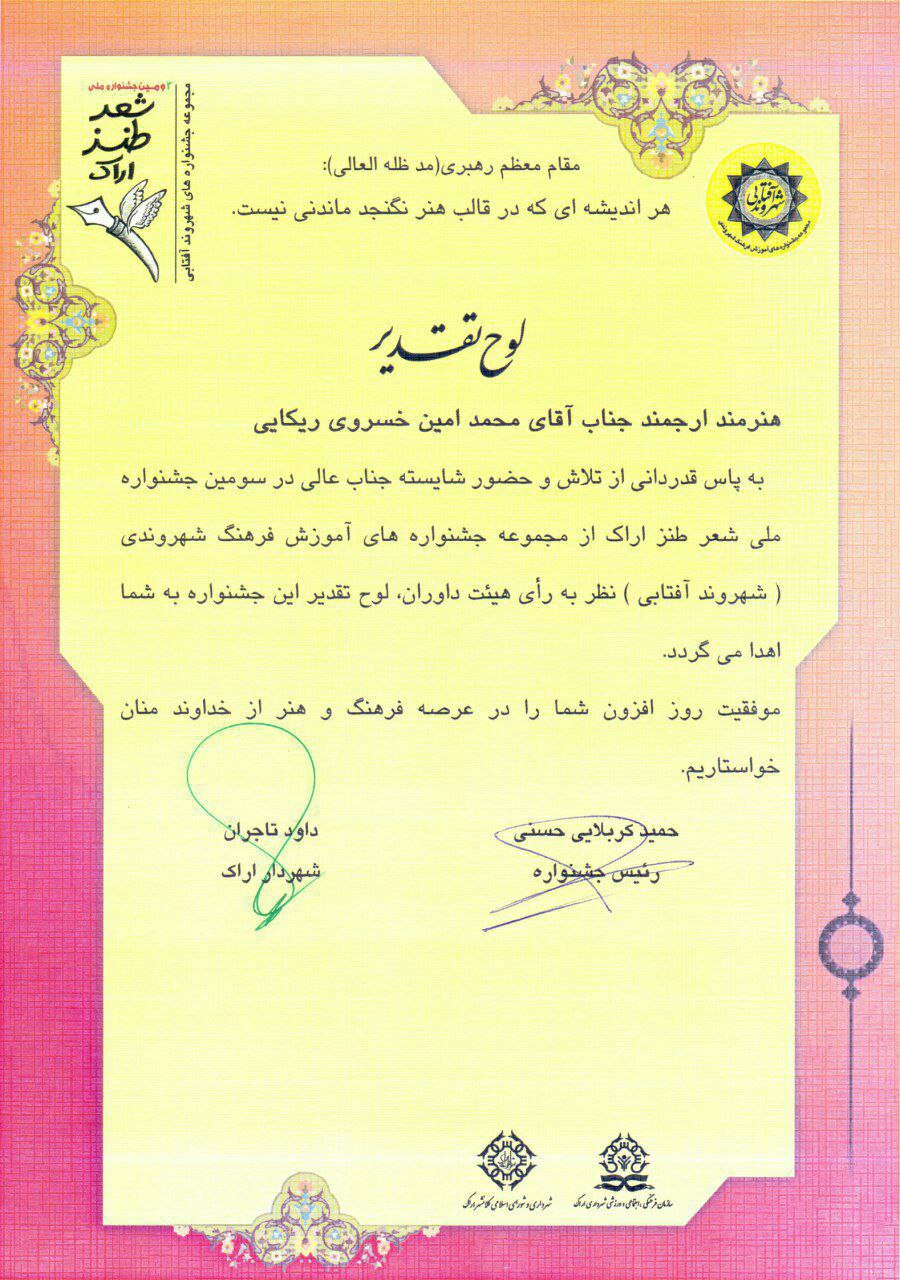 ۳ومین جشنواره ملی
شعر
طنز
اراک
مجموعه جشنواره های شهروند آفتابی
شهروند آفتابی
مجموعه جشنواره های آموزش فرهنگ شهروندی
مقام معظم رهبری(مد ظله العالی):
هر اندیشه ای که در قالب هنر نگنجد ماندنی نیست.
لوح تقدیر
هنرمند ارجمند جناب آقای محمد امین خسروی ریکایی
به پاس قدردانی از تلاش و حضور شایسته جناب عالی در سومین جشنواره
ملی شعر طنز اراک از مجموعه جشنواره های آموزش فرهنگ شهروندی
( شهروند آفتابی ) نظر به رأی هیئت داوران، لوح تقدیر این جشنواره به شما
اهدا می گردد.
موفقیت روز افزون شما را در عرصه فرهنگ و هنر از خداوند منان
خواستاریم.
حمید کربلایی حسنی
رئیس جشنواره
داود تاجران
شهردار اراک
سازمان فرهنگی، اجتماعی و ورزشی شهرداری اراک
شهرداری و شورای اسلامی کلانشهر اراک